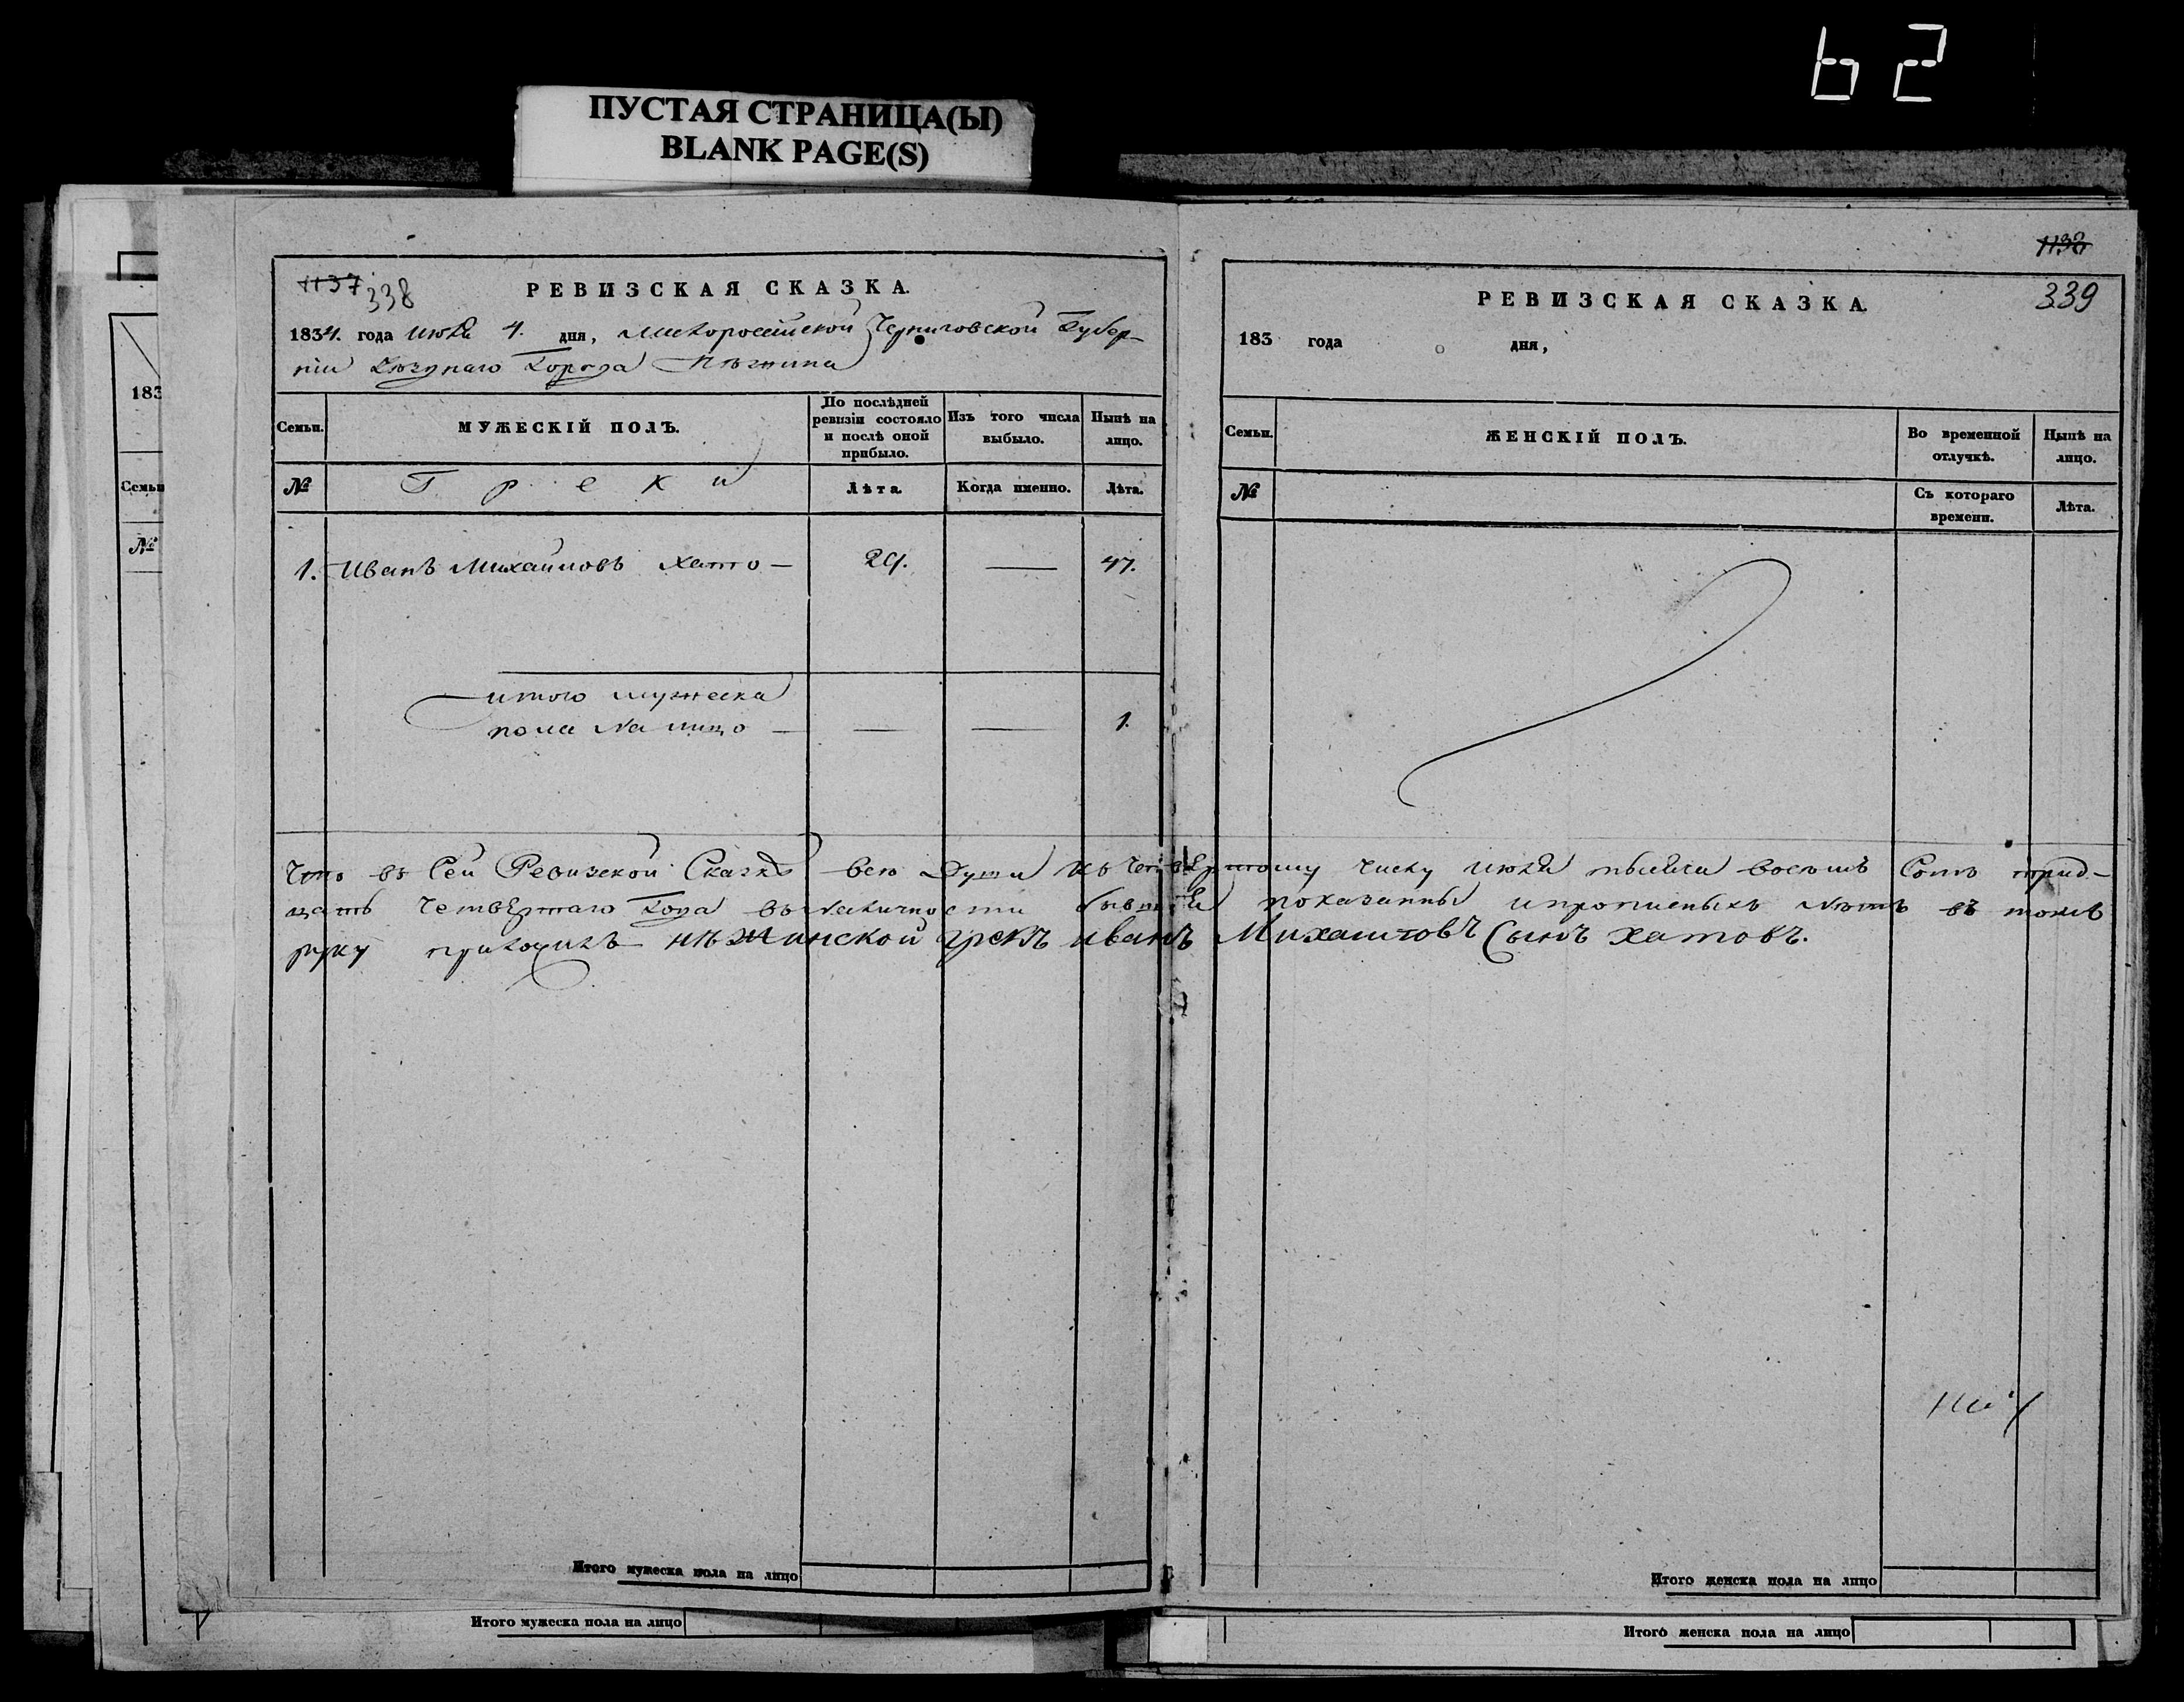 62
ПУСТАЯ СТРАНИЦА(Ы)
BLANK PAGE(S)
183
Семьи
№
1137
338
РЕВИЗСКАЯ СКАЗКА.
1834. года июля 4. дня, Малороссійской Черниговской Губер-
ніи Уѣзднаго Города Нѣжина
Семьи.
МУЖЕСКІЙ ПОЛЪ.
По послѣдней ревизіи состояло и послѣ оной прибыло.
Изъ того числа выбыло.
Нынѣ на лицо.
№
Греки
Лѣта.
Когда именно.
Лѣта.
1. Иванъ Михаиловъ Хато — 29. — 47.
итого мужеска
пола на лицо — — — 1.
1138
339
РЕВИЗСКАЯ СКАЗКА.
183 года дня,
Семьи.
ЖЕНСКІЙ ПОЛЪ.
Во временной отлучкѣ.
Нынѣ на лицо.
№
Съ котораго времени.
Лѣта.
Что въ Сей Ревизской Сказкѣ всѣ Души къ Четвертому числу июля тысяча восемъ Сотъ трид-
цать Четвертаго Года въ наличности бывшія показанны
нѣжинской грекъ иванъ Михаиловъ Сынъ хатовъ.
Итого мужеска пола на лицо
Итого женска пола на лицо
Итого мужеска пола на лицо
Итого женска пола на лицо